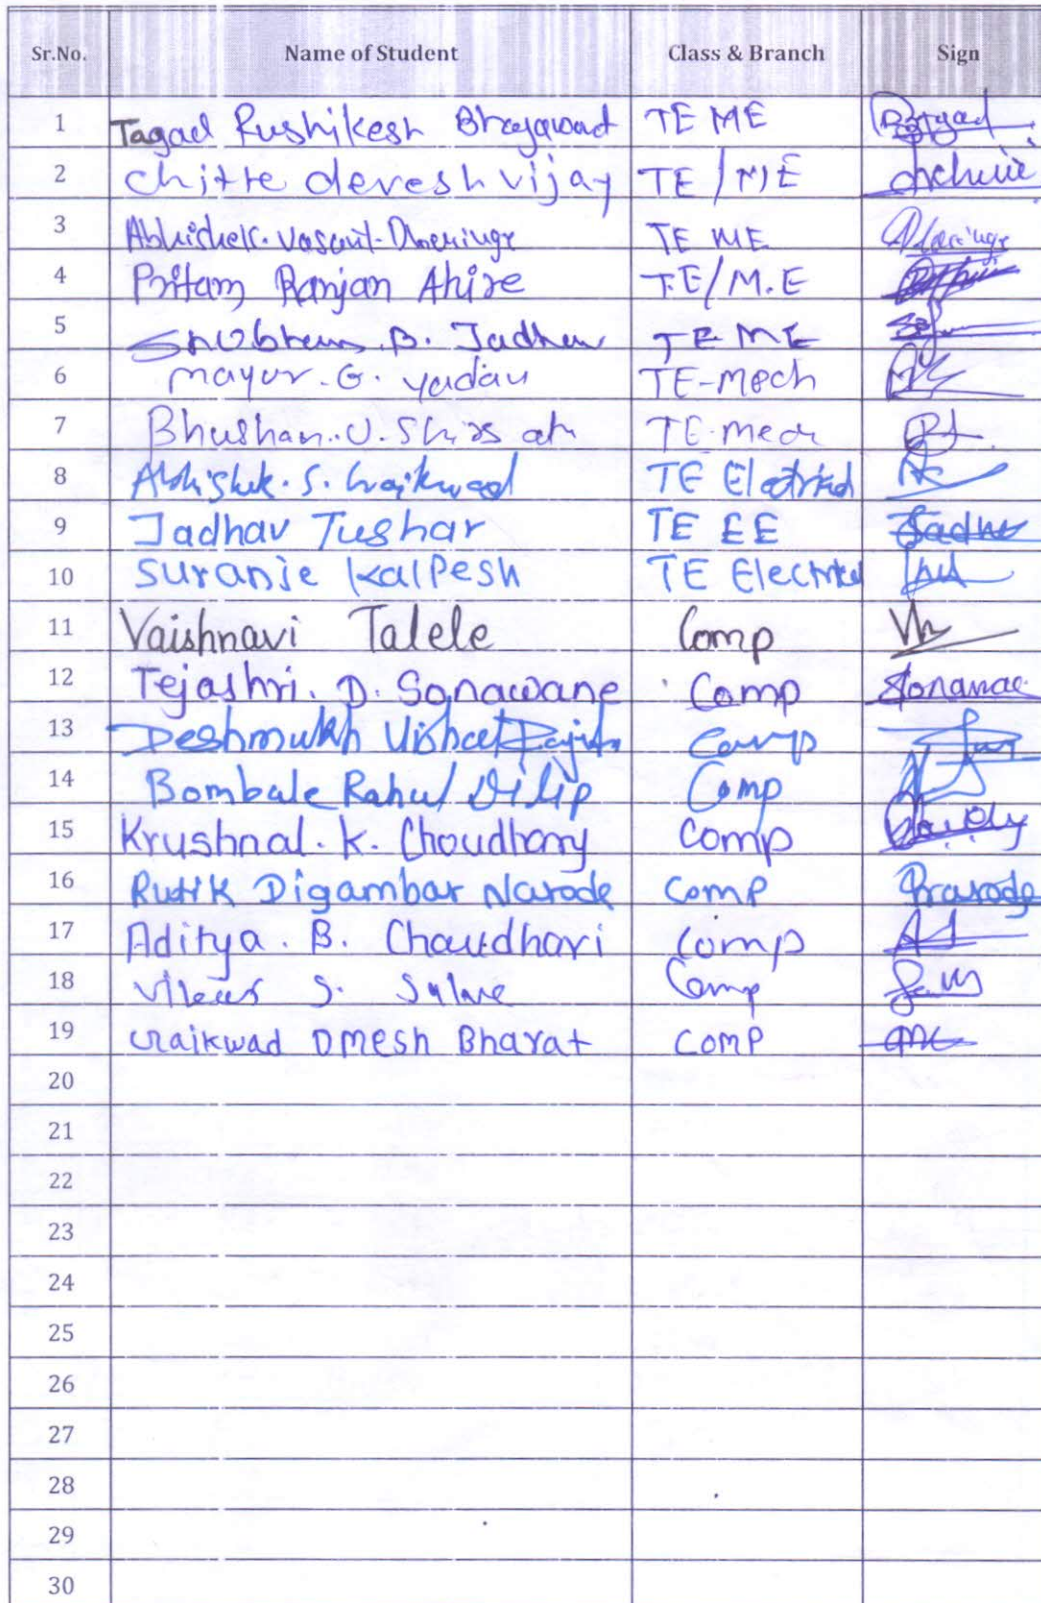 Sr.No. Name of Student Class & Branch Sign
1 Tagad Rushikesh Bhagawat TE ME
2 Chitte devesh vijay TE/ME
3 Abhishek. Vasant. TE ME
4 Pritam Ranjan Ahire TE/M.E
5 B. Jadhav TE ME
6 mayur. G. yadav TE-Mech
7 Bhushan. U. Shirsath TE-mech
8 Abhishek. S. Gaikwad TE Electrical
9 Jadhav Tushar TE EE
10 Suranje Kalpesh TE Electrical
11 Vaishnavi Talele Comp
12 Tejashri. D. Sonawane Comp Sonawane
13 Deshmukh Vishal Comp
14 Bombale Rahul Dilip Comp
15 Krushnal. K. Choudhary Comp.
16 Rutik Digambar Narode Comp
17 Aditya. B. Chaudhari Comp
18 S. Salve Comp
19 Gaikwad Omesh Bharat Comp
20
21
22
23
24
25
26
27
28
29
30